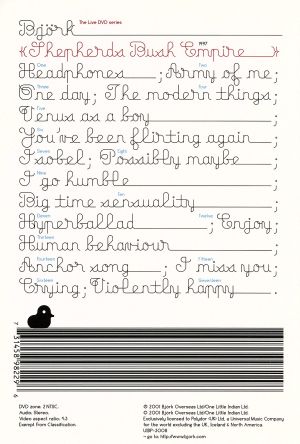 Björk The Live DVD series
Shepherds Bush Empire 1997
One Two
Headphones ; Army of me ;
Three four
One day ; The modern things ;
Five
Venus as a boy ;
Six
You've been flirting again ;
Seven Eight
Isobel ; Possibly maybe ;
Nine
I go humble ;
Ten
Big time sensuality ;
Eleven Twelve
Hyperballad ; Enjoy ;
Thirteen
Human behaviour ;
Fourteen Fifteen
Anchor song ; I miss you ;
Sixteen Seventeen
Crying ; Violently happy .
7 31458 98229 6
DVD zone: 2 NTSC.
Audio. Stereo.
Video aspect ratio. 4:3
Exempt from Classification.
℗ 2001 Björk Overseas Ltd/One Little Indian Ltd.
© 2001 Björk Overseas Ltd/One Little Indian Ltd.
Exclusively licensed to Polydor (UK) Ltd, a Universal Music Company
for the world excluding the UK, Iceland & North America
go to: http://www.bjork.com